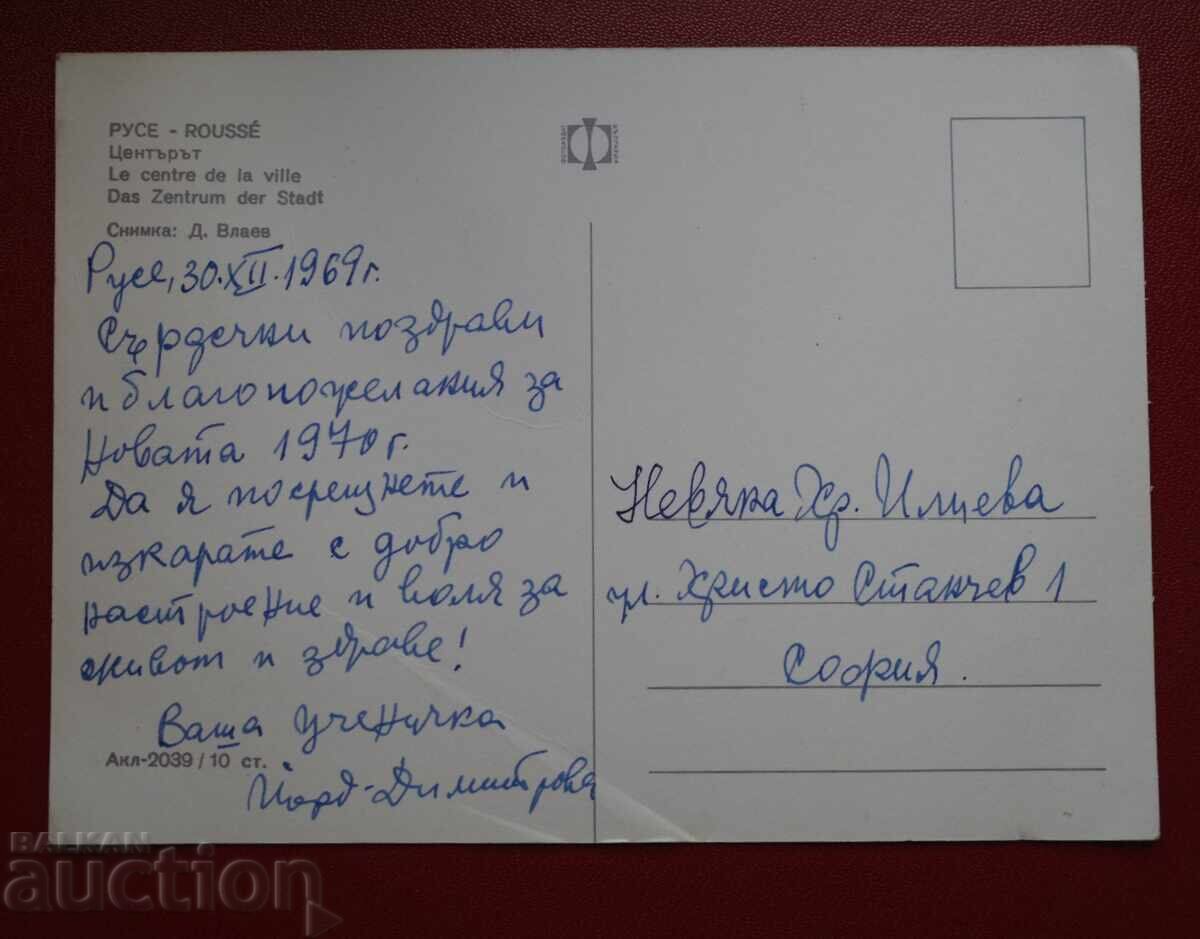 РУСЕ - ROUSSÉ
Центърът
Le centre de la ville
Das Zentrum der Stadt
Снимка: Д. Влаев
Русе, 30.XII.1969 г.
Сърдечни поздрави
и благопожелания за
Новата 1970 г.
Да я посрещнете и
изкарате с добро
настроение и воля за
живот и здраве!
Ваша ученичка
Йорд. Димитрова
Акл-2039 / 10 ст.
Невяна Хр. Илиева
ул. Христо Станчев 1
София.
BALKAN
auction